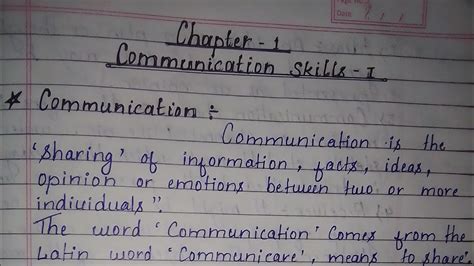 Page No.
Date
Chapter - 1
Communication Skills - I
* Communication ÷
Communication is the
'sharing' of information, facts, ideas,
opinion or emotions between two or more
individuals".
The word 'Communication' Comes from the
Latin word 'Communicare', means to share.